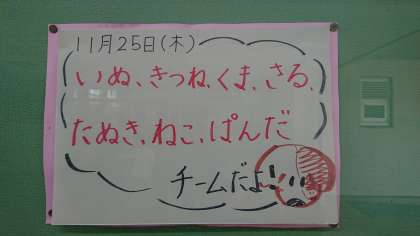 11月25日(木)
いぬ、きつね、くま、さる、
たぬき、ねこ、ぱんだ
チームだよ!